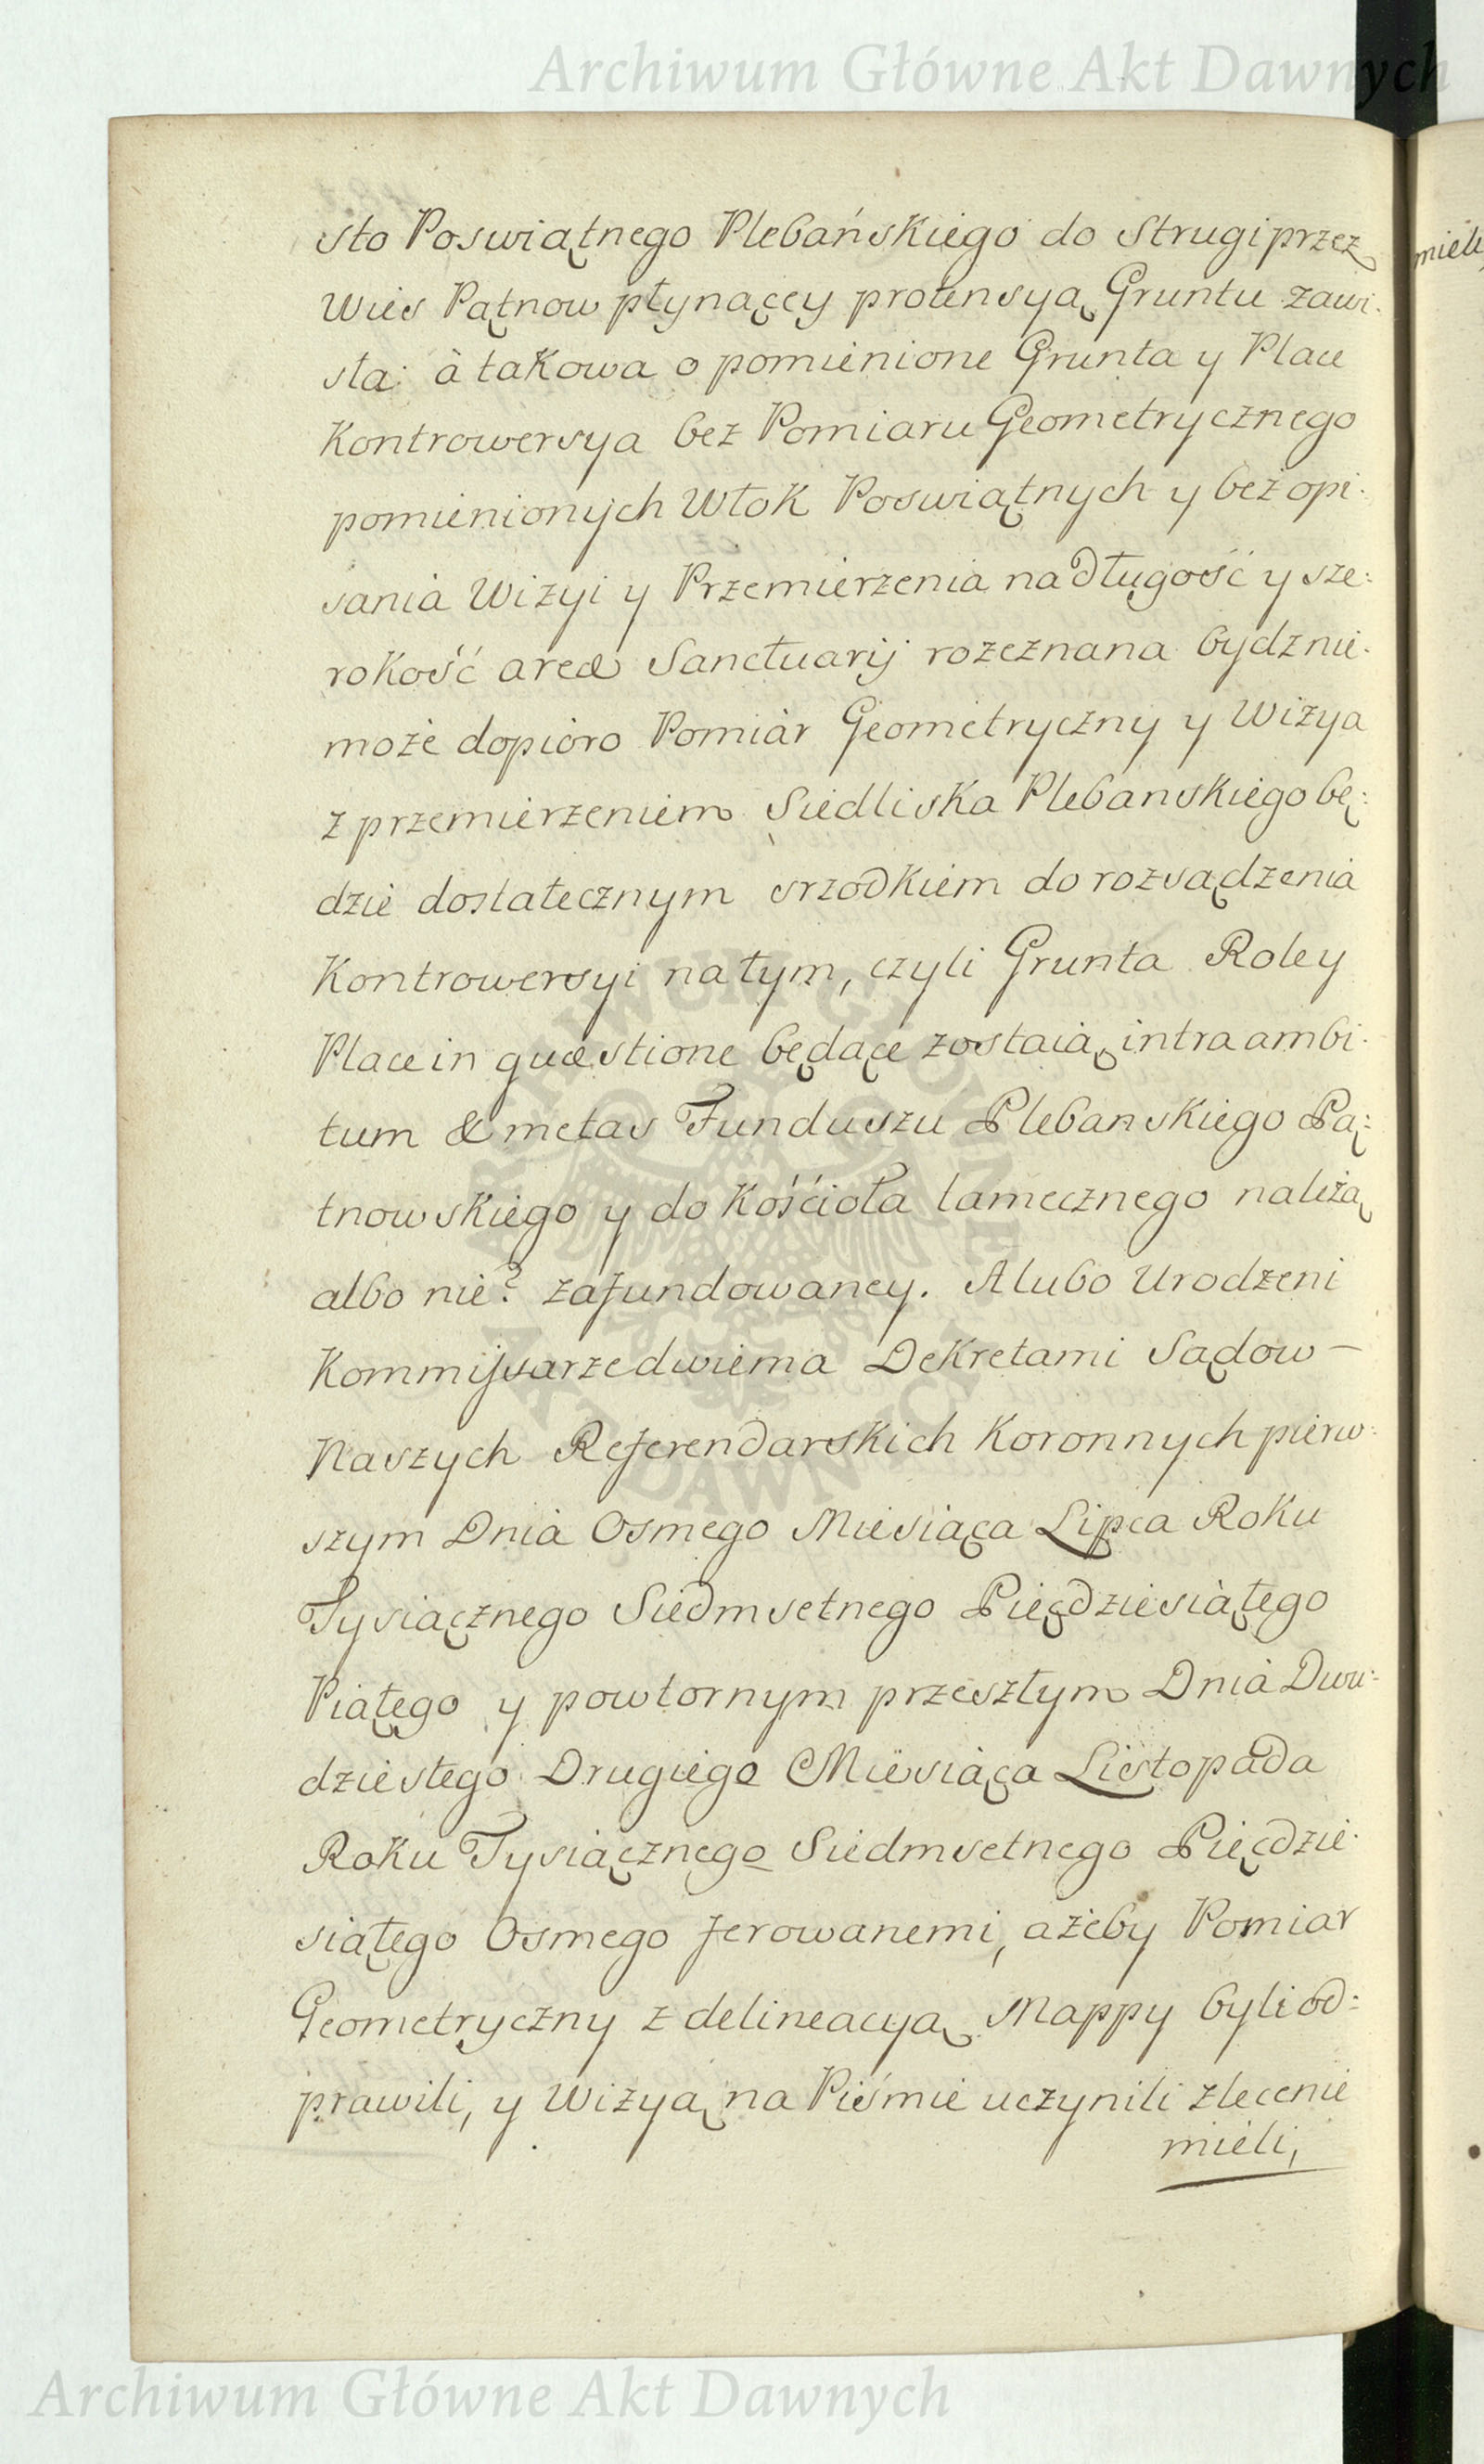 Archiwum Główne Akt Dawnych
sto Poswiątnego Plebańskiego do Strugi przez
Wies Pątnow płynącey protensyą Gruntu zawi.
sta: à takowa o pomienione Grunta y Place
Kontrowersya bez Pomiaru Geometrycznego
pomienionych Włok Poswiątnych y bez opi.
sania Wizyi y Przemierzenia na długość y sze:
rokość areæ Sanctuarij rozeznana bydz nie.
może dopioro Pomiar Geometryczny y Wizya
z przemierzeniem Siedliska Plebanskiego bę:
dzie dostatecznym srzodkiem do rozsądzenia
Kontrowersyi na tym, czyli Grunta Roley
Place in quæstione będące zostaią intra ambi.
tum & metas Funduszu Plebanskiego Pą:
tnowskiego y do Kościoła tamecznego należą
albo nie? zafundowaney. A lubo Urodzeni
Kommissarze dwiema Dekretami Sądow —
Naszych Referendarskich Koronnych pierw:
szym Dnia Osmego Miesiąca Lipca Roku
Tysiącznego Siedmsetnego Pięćdziesiątego
Piątego y powtornym przeszłym Dnia Dwu:
dziestego Drugiego Miesiąca Listopada
Roku Tysiącznego Siedmsetnego Pięćdzie.
siątego Osmego ferowanemi, ażeby Pomiar
Geometryczny z delineacyą Mappy byli od:
prawili, y Wizyą na Piśmie uczynili zlecenie
mieli,
mieli
ARCHIWUM GŁÓWNE AKT DAWNYCH
Archiwum Główne Akt Dawnych